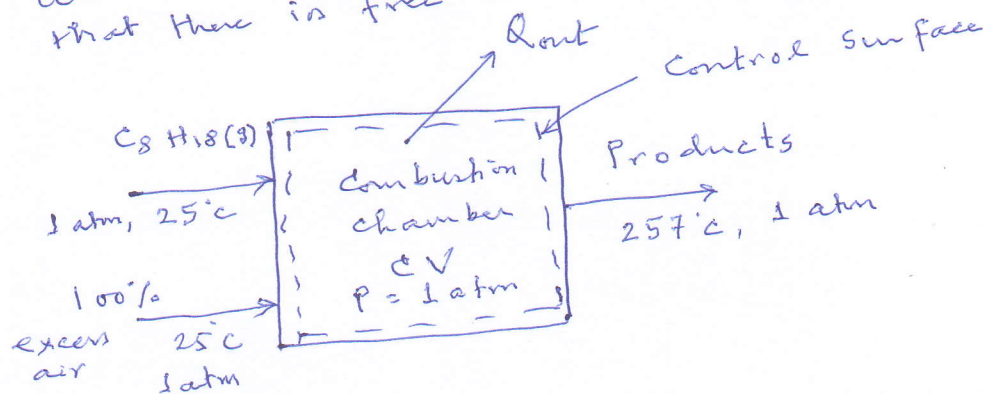 that there is free
Qout
Control Surface
C8 H18(g)
1 atm, 25°C
Combustion
chamber
CV
P = 1 atm
Products
257°C, 1 atm
100%
excess
air
25°C
1 atm